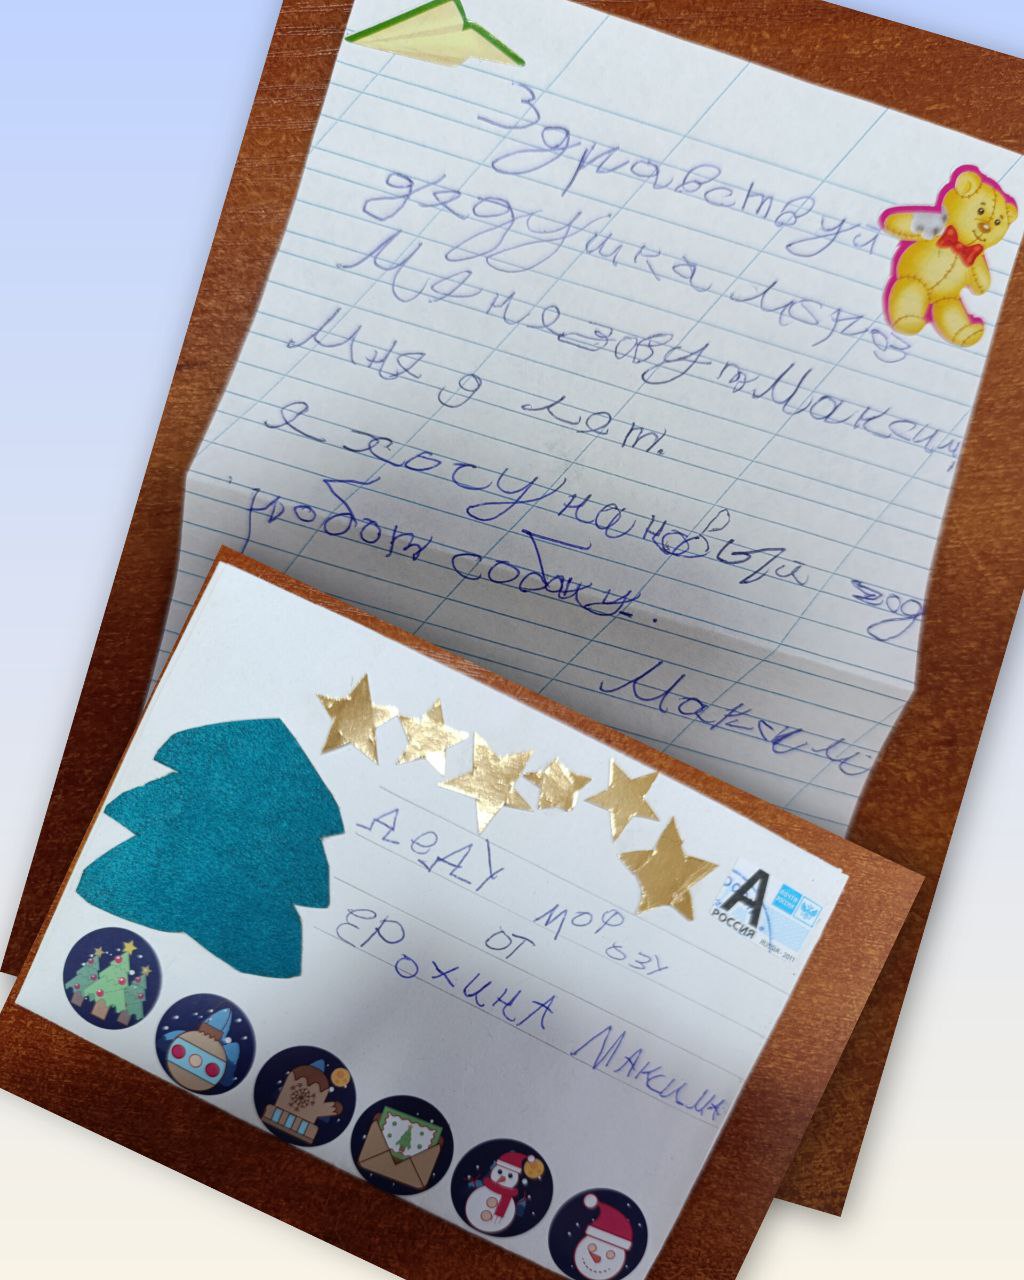 Здравствуй
дедушка мороз
Меня зовут Максим
Мне 9 лет.
я хочу на новый год
робот собаку.
Максим
Деду Морозу
от
Ерохина Максима
А
РОССИЯ
ПОЧТА РОССИИ